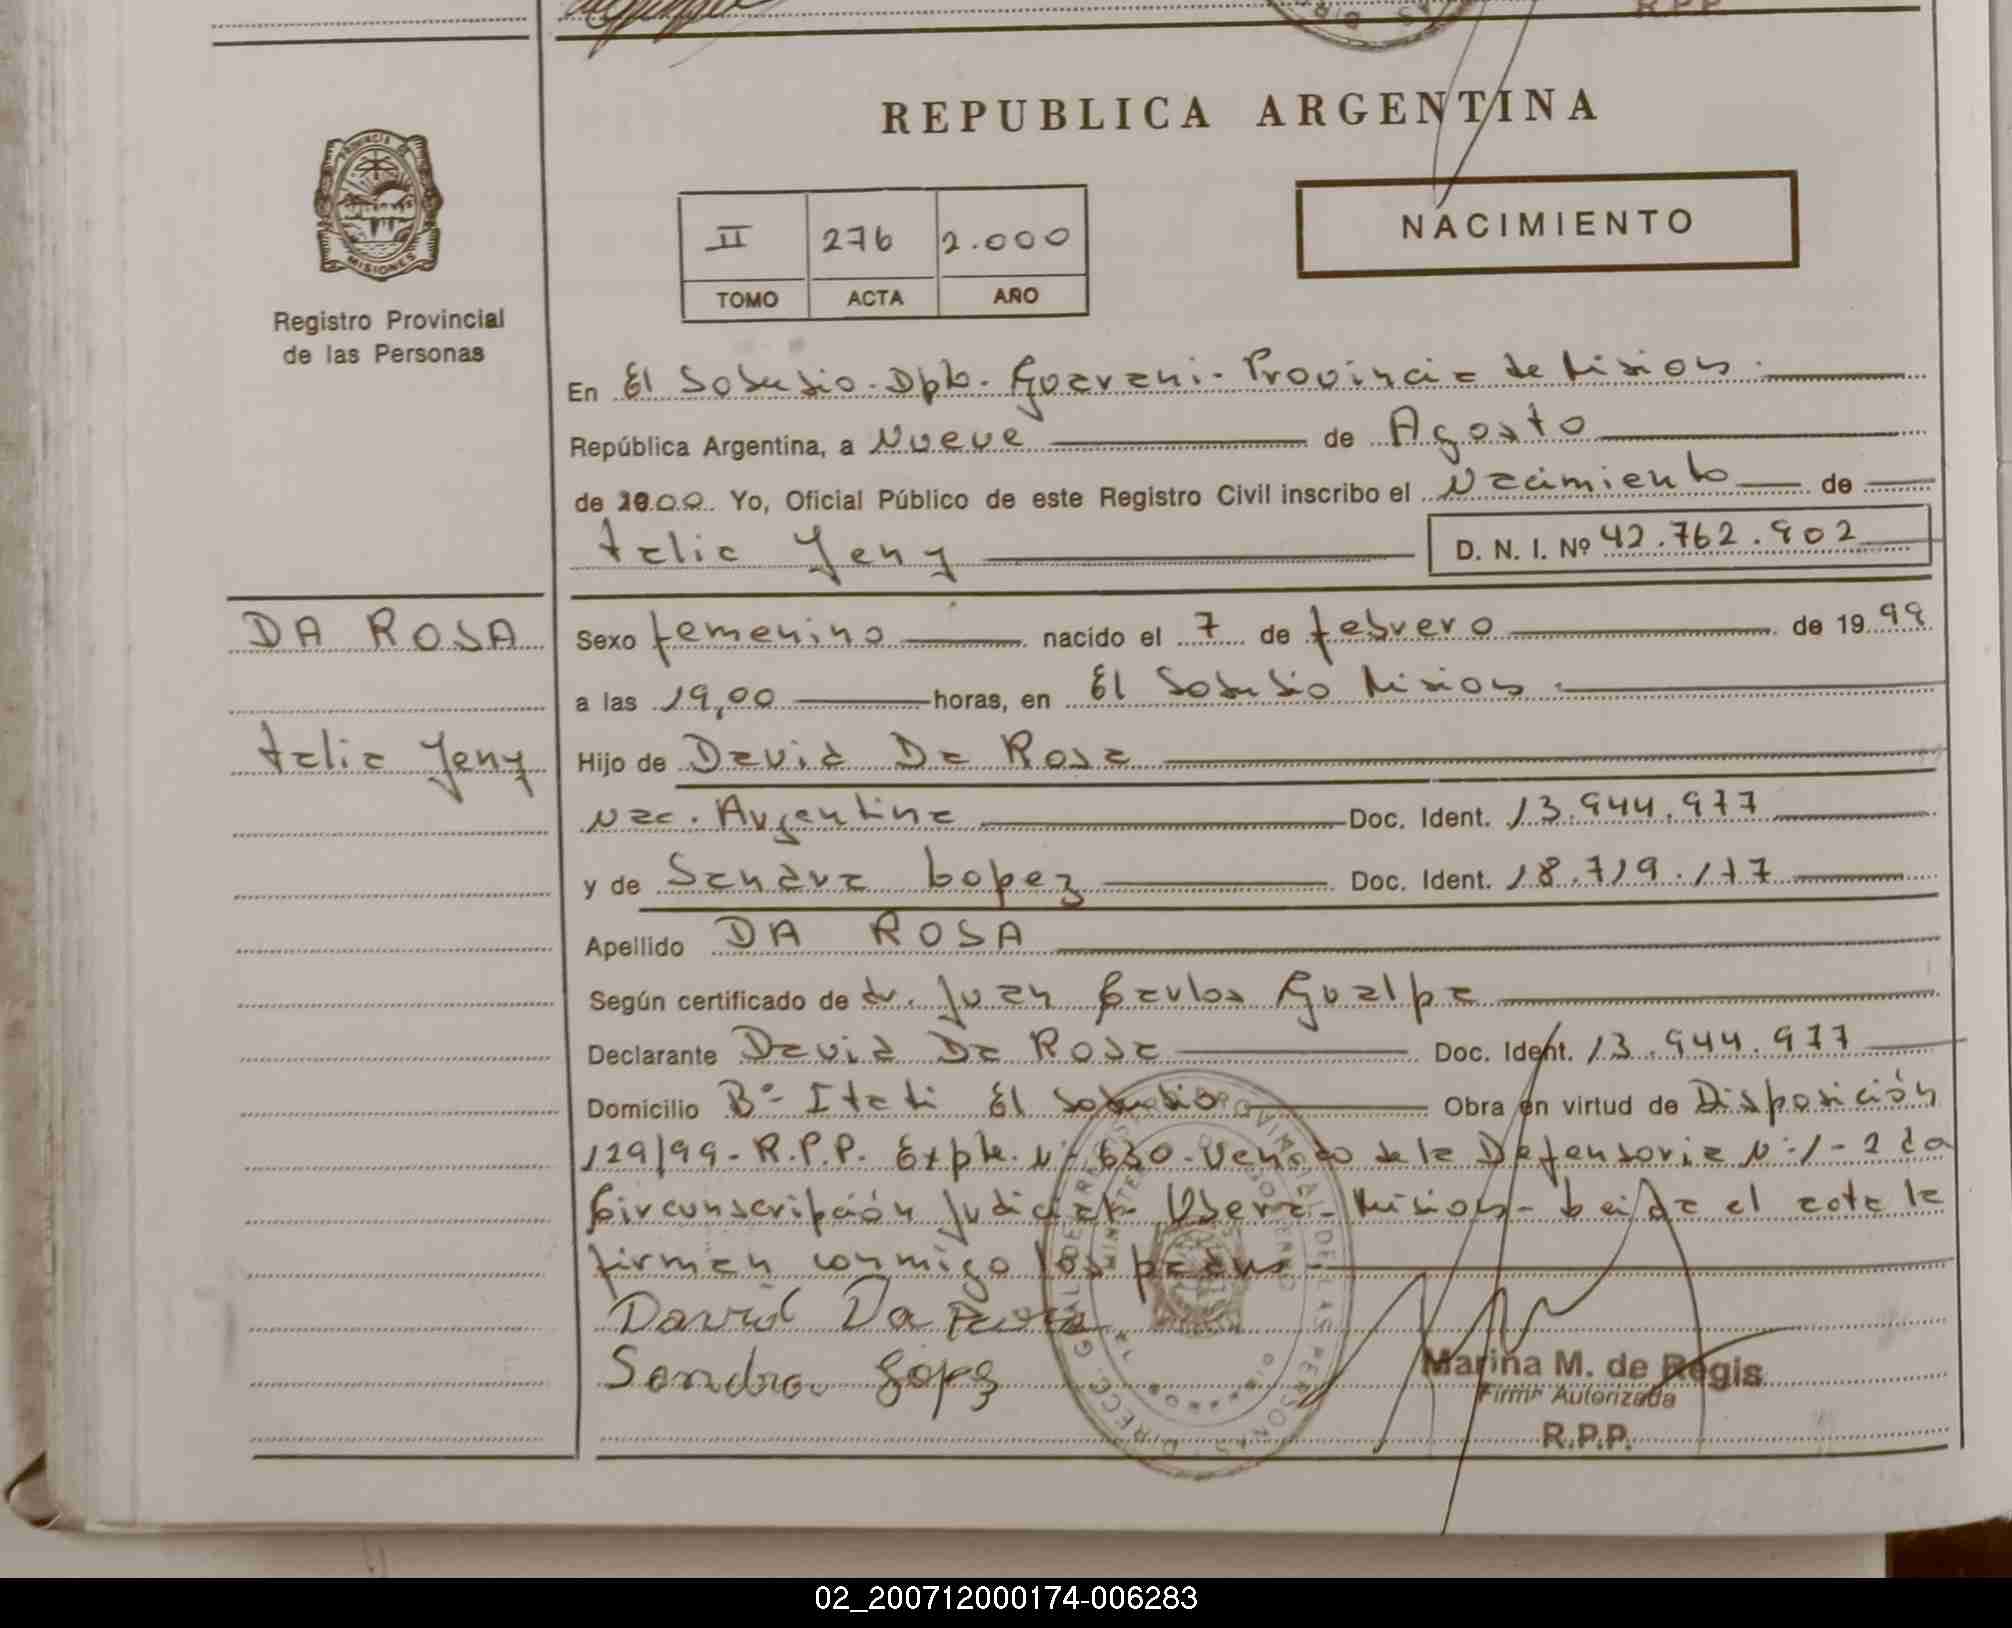 REPUBLICA ARGENTINA
PROVINCIA DE
MISIONES
Registro Provincial
de las Personas
II 276 2.000
TOMO ACTA AÑO
NACIMIENTO
En El Soberbio. Dpto. Guarani. Provincia de Misiones.
República Argentina, a Nueve de Agosto
de 2000. Yo, Oficial Público de este Registro Civil inscribo el Nacimiento de
Italia Yeny D. N. I. Nº 42.762.902
DA ROSA
Italia Yeny
Sexo femenino nacido el 7 de febrero de 1999
a las 19,00 horas, en El Soberbio Misiones.
Hijo de David Da Rosa
Nac. Argentina Doc. Ident. 13.944.977
y de Sandra Lopez Doc. Ident. 18.719.117
Apellido DA ROSA
Según certificado de dr. Juan Carlos Gualpa
Declarante David Da Rosa Doc. Ident. 13.944.977
Domicilio Bº Itati El Soberbio Obra en virtud de Disposición
129/99-R.P.P. Expte. Nº 630. de la Defensoria Nº 1-2da
Circunscripción Judicial. Oberá-Misiones- leida el acta la
firman conmigo los padres.
David Da Rosa
Sandra López
Marina M. de Regis
Firma Autorizada
R.P.P.
02_200712000174-006283